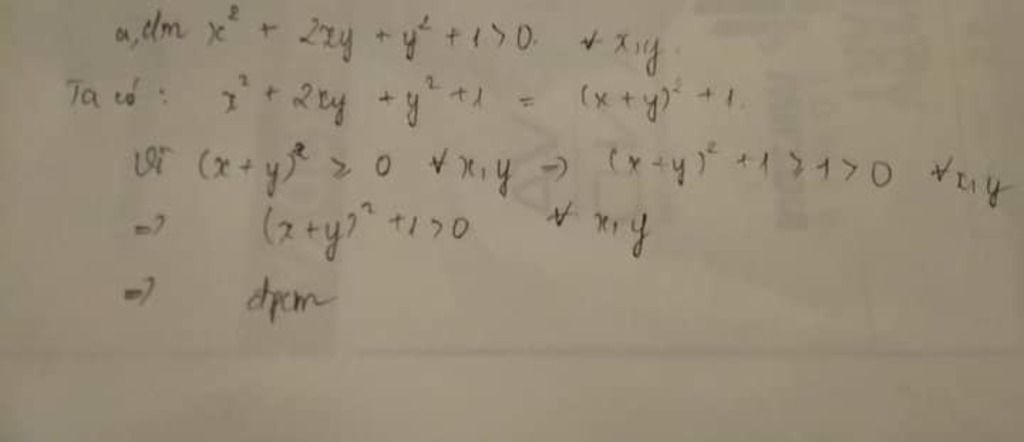 a, cm x² + 2xy + y² + 1 > 0 ∀ x, y
Ta có : x² + 2xy + y² + 1 = (x + y)² + 1.
Vì (x + y)² ≥ 0 ∀ x, y => (x + y)² + 1 ≥ 1 > 0 ∀ x, y
=> (x + y)² + 1 > 0 ∀ x, y
=> đpcm